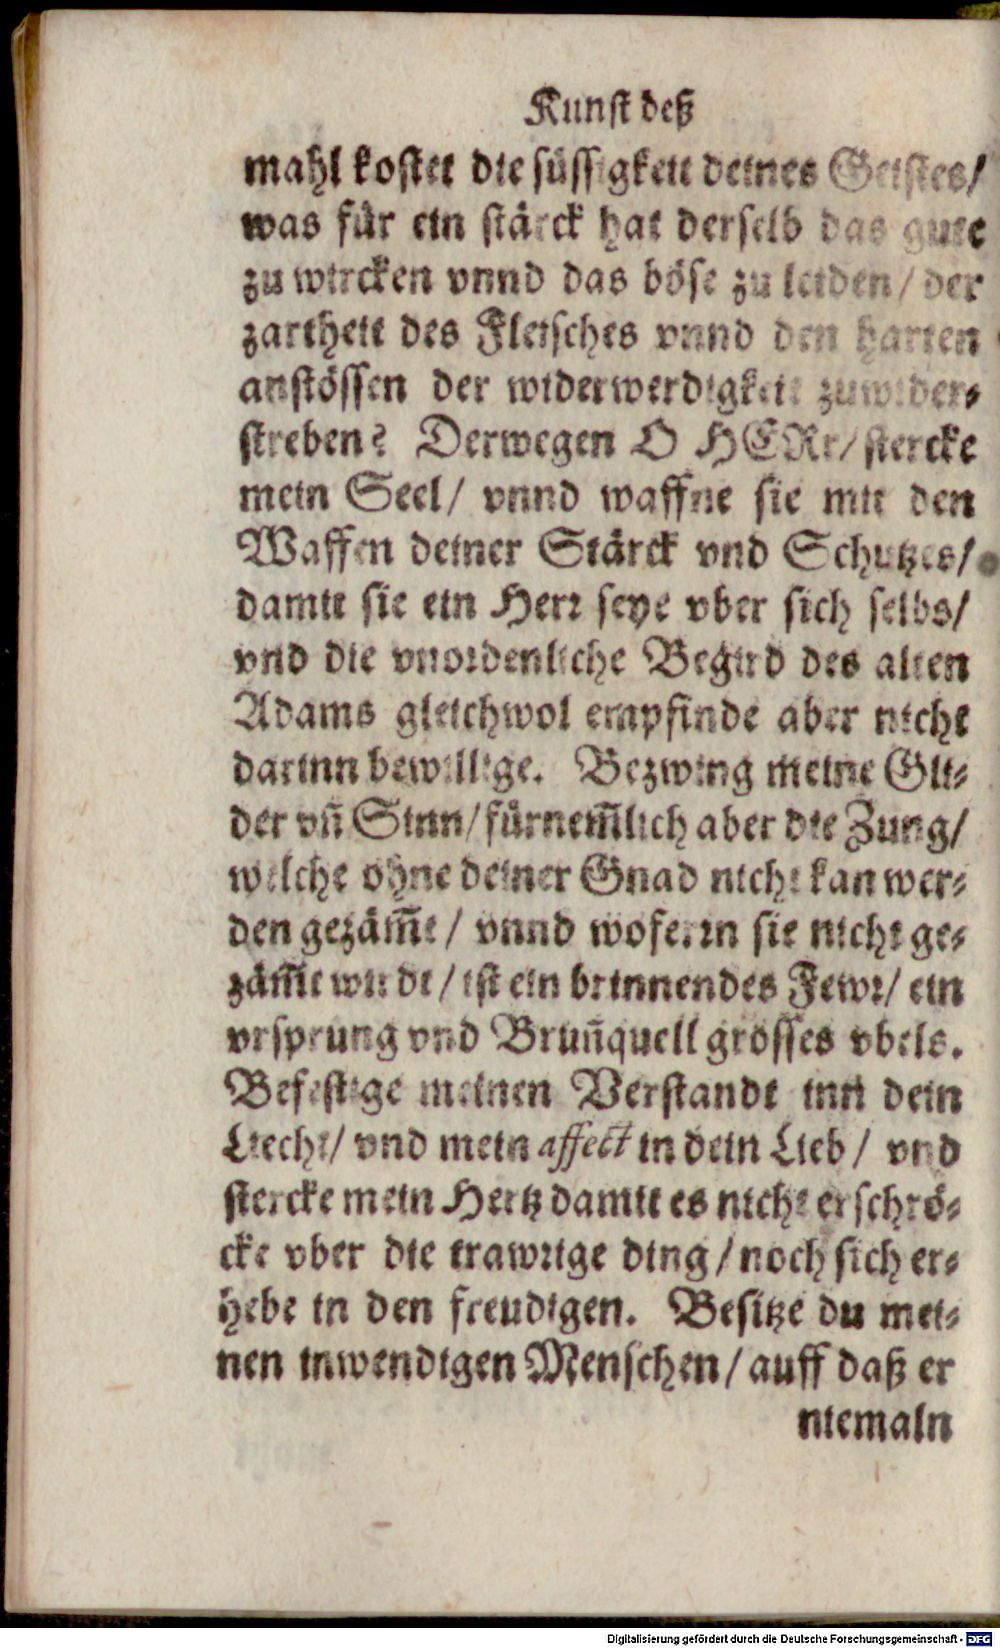 Kunst deß
mahl kostet die süssigkeit deines Geistes/
was für ein stärck hat derselb das gute
zu wircken vnnd das böse zu leiden/ der
zartheit des Fleisches vnnd den harten
anstössen der widerwerdigkeit zuwider⸗
streben? Derwegen O HERr/ stercke
mein Seel/ vnnd waffne sie mit den
Waffen deiner Stärck vnd Schutzes/
damit sie ein Herr seye vber sich selbs/
vnd die vnordenliche Begird des alten
Adams gleichwol empfinde aber nicht
darinn bewillige. Bezwing meine Gli⸗
der vñ Sinn/ fürnem̃lich aber die Zung/
welche ohne deiner Gnad nicht kan wer⸗
den gezäm̃t/ vnnd woferrn sie nicht ge⸗
zäm̃t wirdt/ ist ein brinnendes Fewr/ ein
vrsprung vnd Bruñquell grosses vbels.
Befestige meinen Verstandt inn dein
Liecht/ vnd mein affect in dein Lieb/ vnd
stercke mein Hertz damit es nicht erschrö⸗
cke vber die trawrige ding/ noch sich er⸗
hebe in den freudigen. Besitze du mei⸗
nen inwendigen Menschen/ auff daß er
niemaln
Digitalisierung gefördert durch die Deutsche Forschungsgemeinschaft - DFG